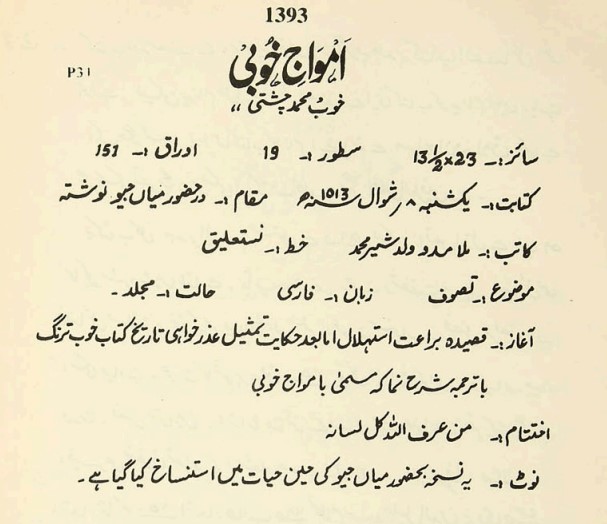 1393
امواجِ خوبی
P31
خوب محمد چشتی ،،
سائز :۔ 23×13½ سطور :۔ 19 اوراق :۔ 151
کتابت :۔ یکشنبہ ۸؍شوال سنہ 1013ھ مقام :۔ در حضور میاں جیو نوشتہ
کاتب :۔ ملا ممدو ولد شیر محمد خط :۔ نستعلیق
موضوع :۔ تصوف زبان :۔ فارسی حالت :۔ مجلد ۔
آغاز :۔ قصیدہ براعت استہلال امابعد حکایت تمثیل عذر خواہی تاریخ کتاب خوب ترنگ
با ترجمہ شرح نما کہ مسمیٰ بامواج خوبی
اختتام :۔ من عرف اللہ کل لسانہ
نوٹ :۔ یہ نسخہ بحضور میاں جیو کی حین حیات میں استنساخ کیا گیا ہے ۔